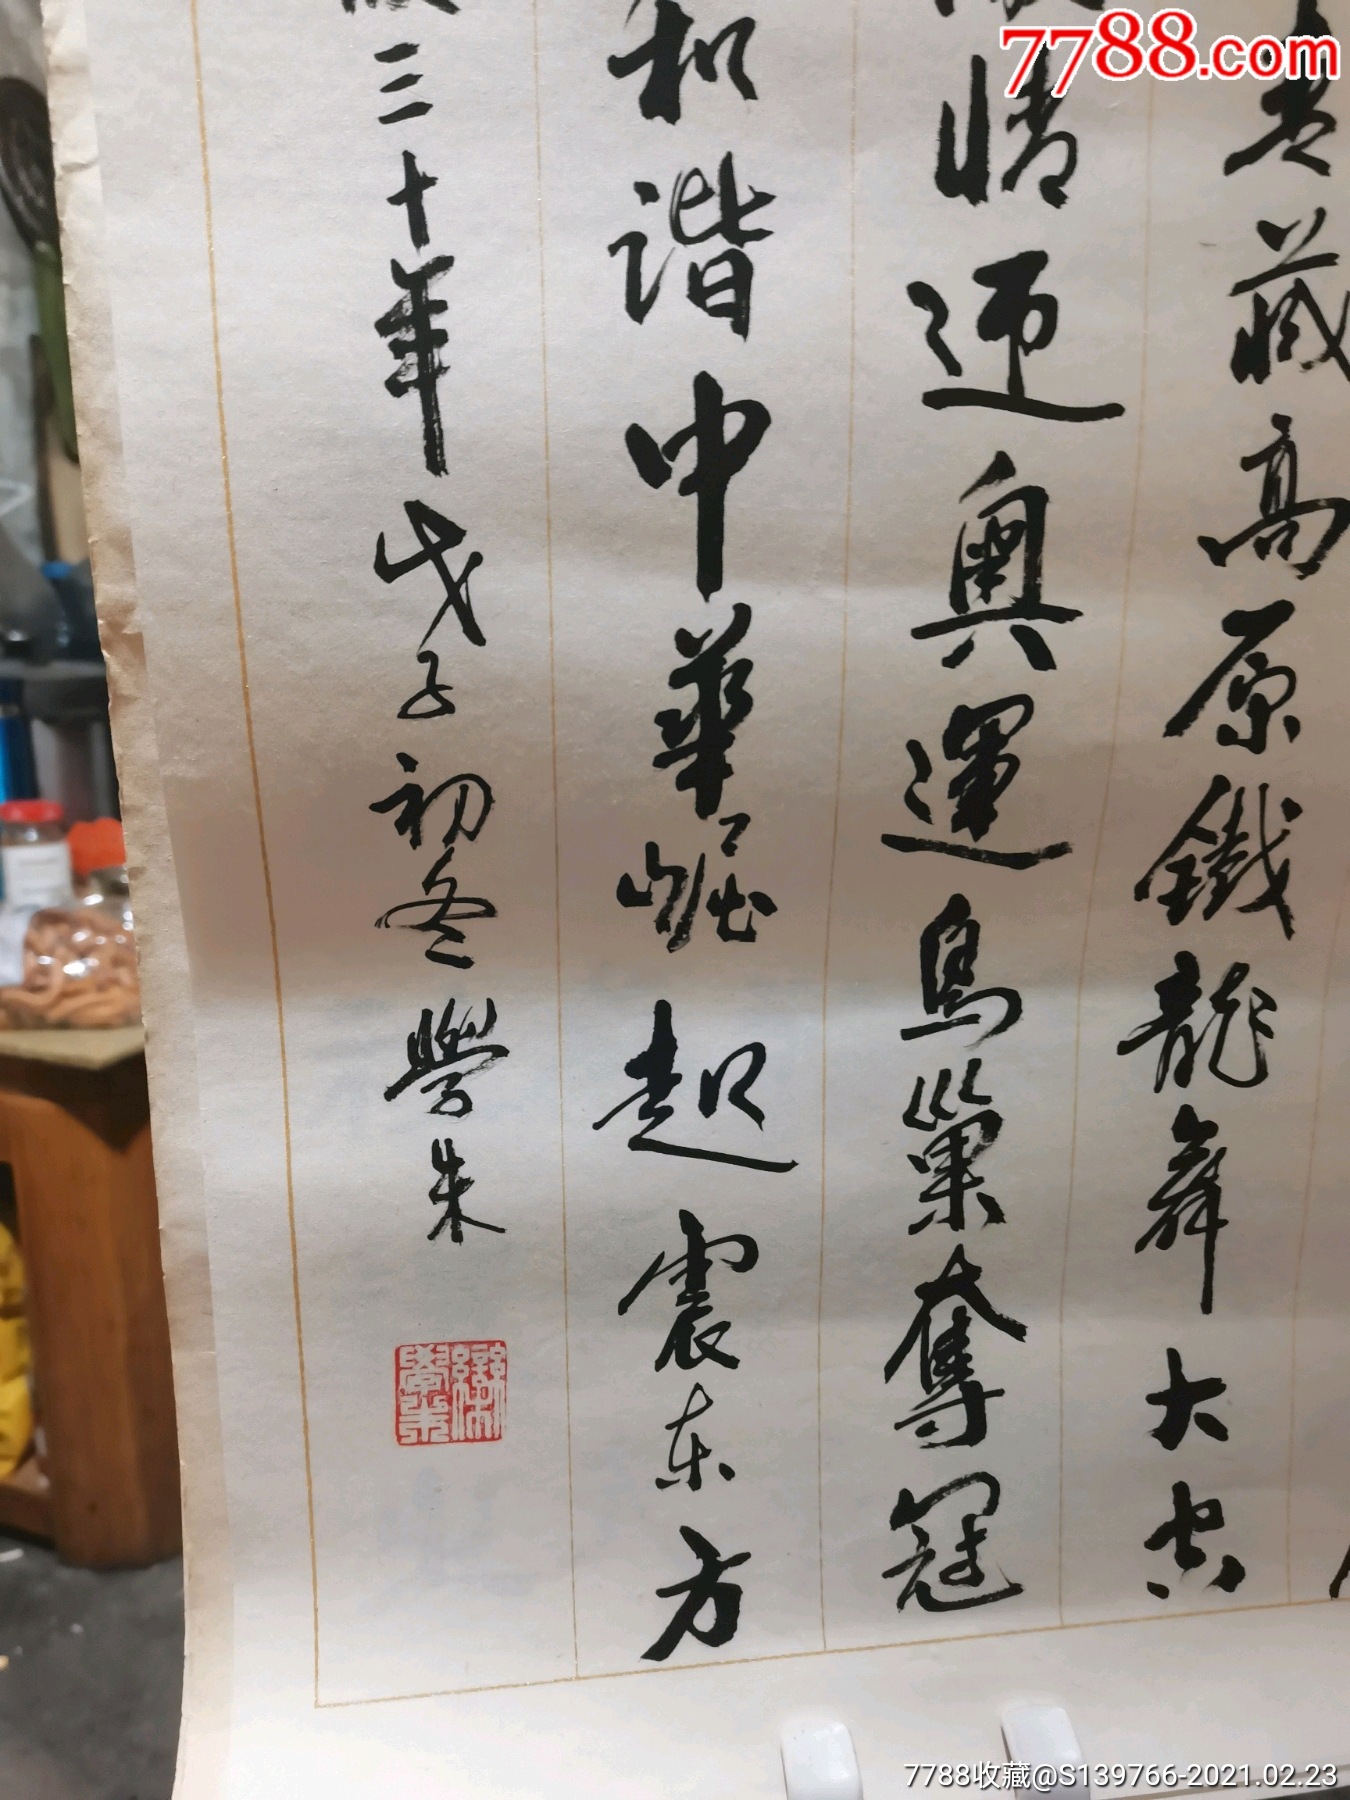 7788.com
藏高原鐵龍舞大空
情迎奧運鳥巢奪冠
和谐中華崛起震东方
三十年戊子初冬學朱
7788收藏@S139766-2021.02.23